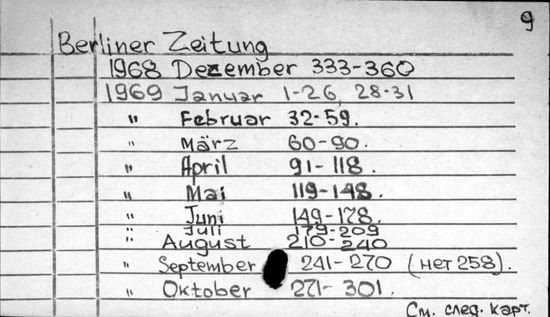 9
Berliner Zeitung
1968 Dezember 333-360
1969 Januar 1-26, 28-31
" Februar 32-59.
" März 60-90.
" April 91-118.
" Mai 119-148.
" Juni 149-178.
" Juli 179-209
" August 210-240
" September 241-270 (нет 258).
" Oktober 271-301.
См. след. карт.